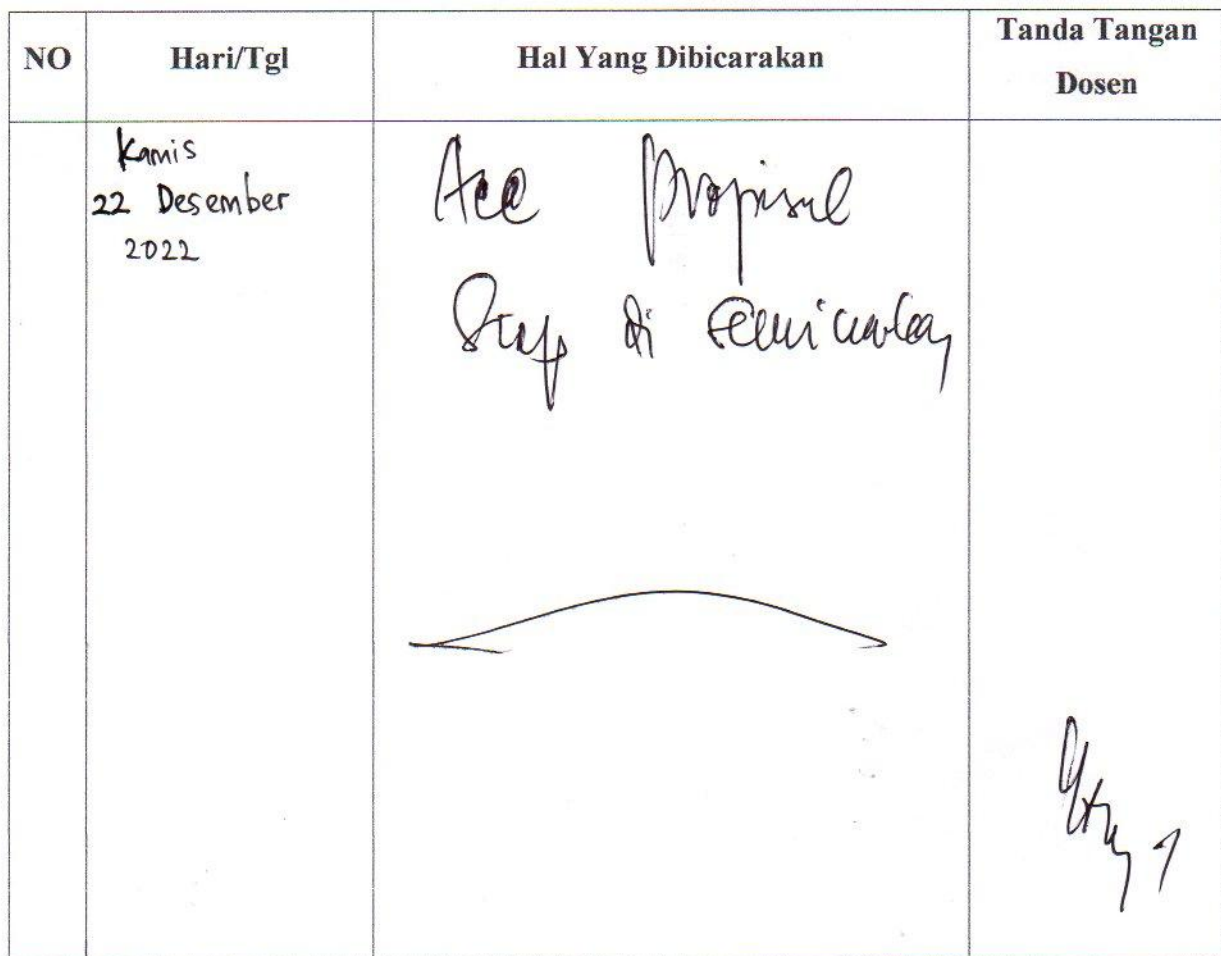 NO
Hari/Tgl
Hal Yang Dibicarakan
Tanda Tangan
Dosen
Kamis
22 Desember
2022
Acc proposal
Siap di seminarkan